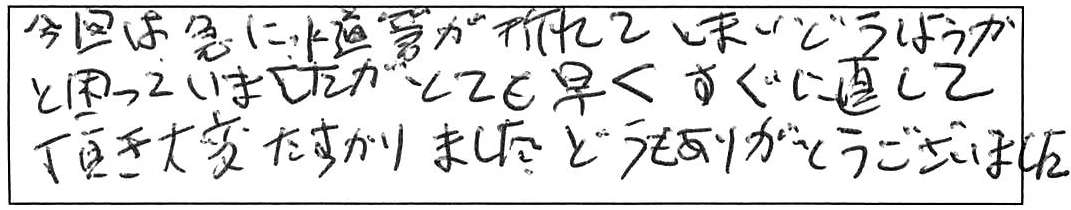 今回は急に水道管が折れてしまいどうしようか
と困っていましたがとても早くすぐに直して
頂き大変たすかりました。どうもありがとうございました